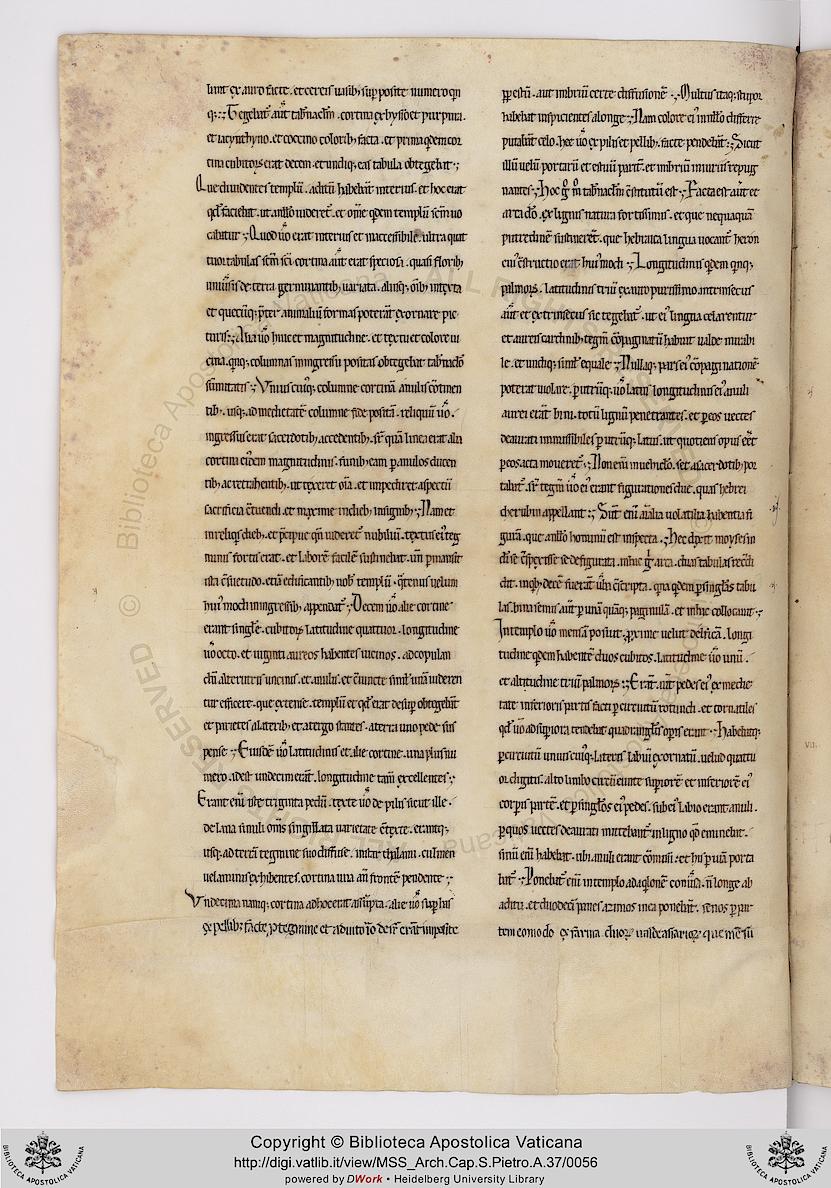 lunt ex auro facte. et cereis uasib; sup posite numero qn
q;. Tegebat aut tabnaclm. cortina ex bysso et purpura.
et iacynthyno. et coccino colorib; facta. et prima qdem cor
tina cubitorum erat decem. et undiq; eas tabula obtegebat.
Que diuidentes templu. aditu habebat interius. et hoc erat
qd faciebat. ut a nullo uideret. et ome qdem templu scm uo
cabatur. Quod uo erat interius et inaccessibile. ultra quat
tuor tabulas scm sci. cortina aut erat speciosa. quasi florib;
uniusis de terra germinantib; uariata. aliisq; oib; intexta
et quecuq; pter animaliu formas poterat exornare pic
turis. Alia uo huic et magnitudine. et textu et colore ui
cina. qnq; columnas in ingressu positas obtegebat tabnaclo
sumitatis. Unius cuiq; columne cortina anulis cotinen
tib; usq; ad medietate columne fide posita. reliquu uo.
ingressus erat sacerdotib; accedentib;. sr qua linea erat alia
cortina eidem magnitudinis. funib; eam p anulos ducen
tib; ac retrahentib;. ut texeret oia. et impediret aspectu
sacrificia tuendi. et maxime in dieb; insignib;. Nam et
in reliqs dieb;. et pcipue cu uideret nubilu. textus ei teg
minis fortis erat. et labore facile sustinebat. un pmansit
ista cosuetudo. etia edificantib; nob templu. qtenus uelum
hui modi in ingressib; appendat. Decem uo alie cortine
erant single. cubitorum latitudine quattuor. longitudine
uo octo. et uiginti aureos habentes uncinos. ad copulan
du alterutris uncinis. et anulis. et coiuncte simul una uideren
tur efficere. que extense. templu et qd erat desup obtegebat
et parietes a laterib; et a tergo stantes. a terra uno pede sus
pense. Eiusde uo latitudinis et alie cortine. una plus nu
mero. id est undecim erat. longitudine tam excellentes.
Erant eni iste triginta pedu. texte uo de pilis sicut ille.
de lana simili omis singillata uarietate cotexte. erantq;
usq; ad terra tegmine suo diffuse. instar thalami. culmen
uelaminis exhibentes. cortina una an fronte pendente.
Undecima namq; cortina ad hoc erat assupta. alie uo sup has
ex pellib; facte. p tegmine et adiutorio desr erat imposite
p estu. aut imbriu certe diffusione. Multus itaq; stupor
habebat inspicientes a longe. Nam colore ei in nullo differre
putabat celo. hec uo ex pilis et pellib; facte pendebat. Sicut
illu uelu portaru et estuu parit. et imbriu iniuriis repug
nantes. Hoc g m tabnaclm costitutu est. Facta est aut et
arca do. ex lignis natura fortissimis. et que nequaqua
putredine sustineret. que hebraica lingua uocant heron
cui costructio erat hui modi. Longitudinis qdem qnq;
palmorum. latitudinis triu ex auro purissimo intrinsecus
aut et extrinsecus sic tegebat. ut ei ligna celarentur
et aureis cardinib; tegm copaginatu habuit ualde mirabi
le. et undiq; simil equale. Nullaq; pars ei copaginatione
poterat uiolare. p utruq; uo latus longitudinis ei anuli
aurei erat bini. totu lignu penetrantes. et p eos uectes
deaurati inmissibiles p utruq; latus. ut quotiens opus eet
p eos acta moueret. Non eni in uehiclo. set a sacerdotib; por
tabat. sr tegm uo ei erant figurationes due. quas hebrei
cherubin appellant. Sunt eni aialia uolatilia habentia fi
gura. que a nullo hominu est inspecta. Hec dixit moyses in
di se cospexisse sede figurata. in hac g arca. duas tabulas recdi
dit. in qb; decem fuerat uba coscripta. qna qdem p singlas tabu
las. bina semis aut p una quaq; paginula. et in hac collocauit.
In templo uo mensa posuit. pxime uelut delfica. longi
tudine qdem habente duos cubitos. latitudine uo unu.
et altitudine triu palmorum. Erat aut pedes ei ex medie
tate inferioris partis facti p circuitu rotundi. et tornatiles
qd uo ad supiora tendebat quadrangli opis erant. Habebatq;
p circuitu unius cuiq; lateris labiu exornatu. uelud quattu
or digitis. alto limbo circueunte supiore et inferiore ei
corpis parte. et p singlos ei pedes. sub ei labio erant anuli.
p quos uectes deaurati mittebant in ligno qd eminebat.
sinu eni habebat. ubi anuli erant comissi. et his p uia porta
bat. Ponebat eni in templo ad aqlone conuisa. n longe ab
aditu. et duodeci panes azimos in ea ponebat. senos p par
tem eo modo ex farina duorum ualde assariorum que mesu